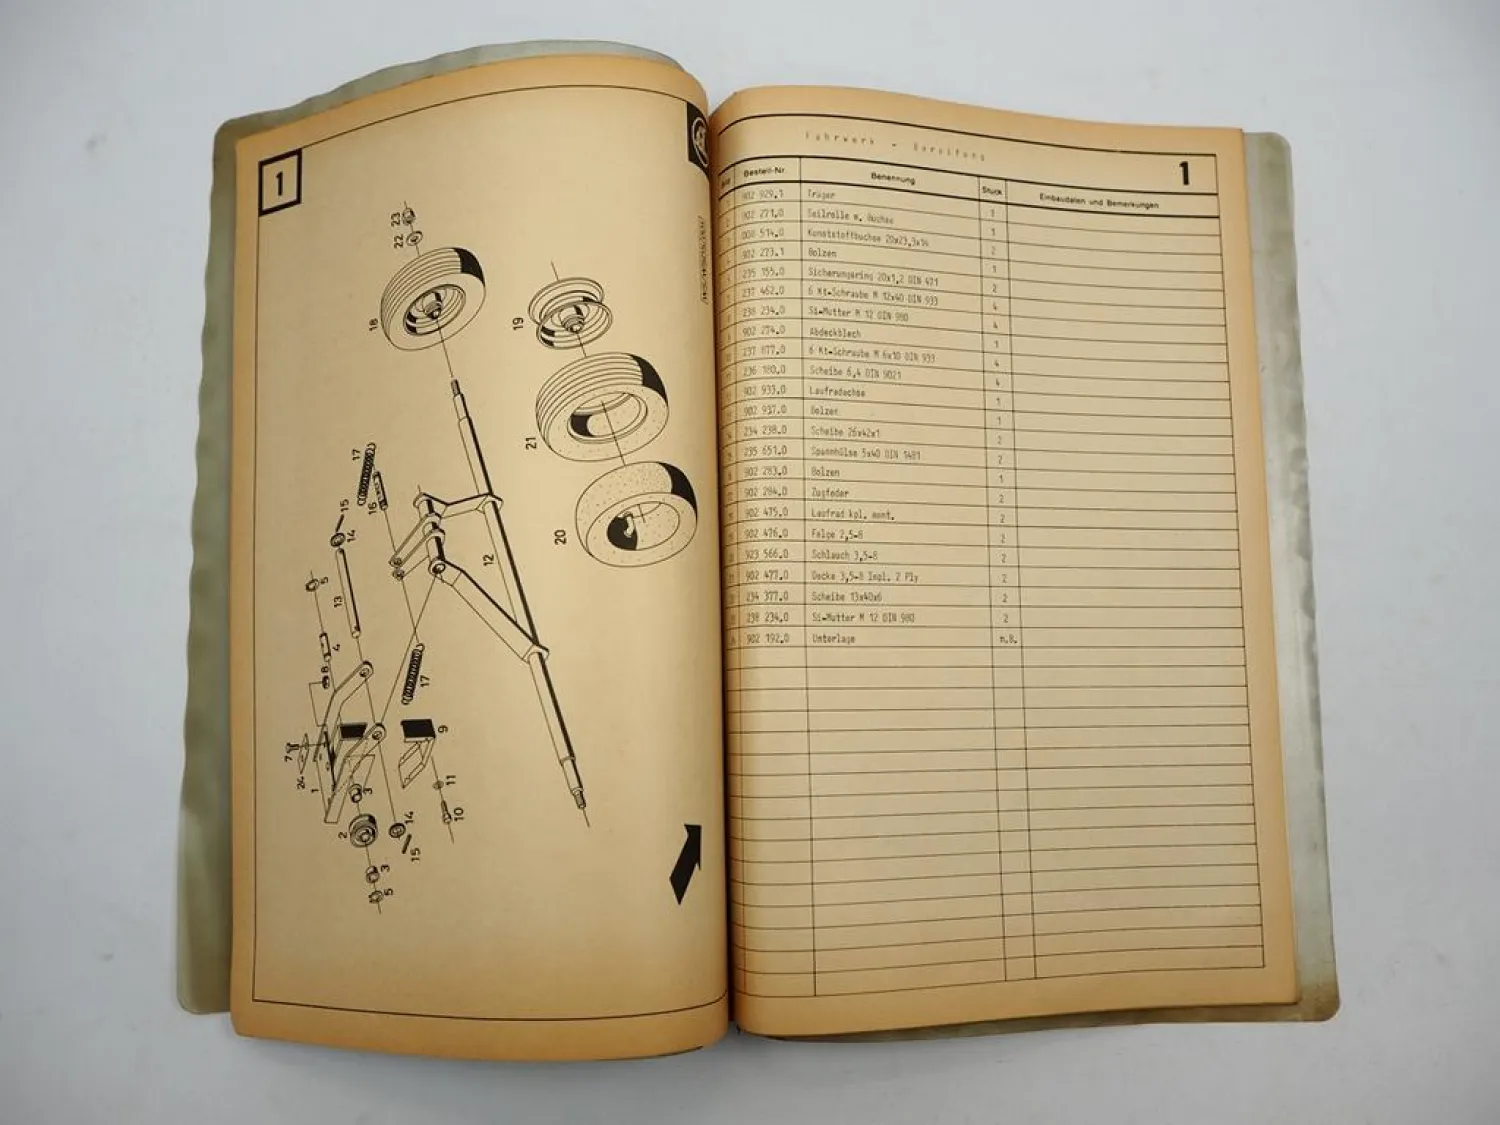 1
23
22
18
19
21
20
17
16
15
14
12
5
13
4
8
17
7
24
1
3
9
2
14
11
10
15
3
5
Fahrwerk - Bereifung
1
Bestell-Nr.
Benennung
Stück
Einbaudaten und Bemerkungen
902 929.1 Träger 1
902 271.0 Seilrolle m. Buchse 1
008 514.0 Kunststoffbuchse 20x23,3x14 2
902 273.1 Bolzen 1
235 155.0 Sicherungsring 20x1,2 DIN 471 2
237 462.0 6 Kt-Schraube M 12x40 DIN 933 4
238 234.0 Si-Mutter M 12 DIN 980 4
902 274.0 Abdeckblech 1
237 077.0 6 Kt-Schraube M 6x10 DIN 933 4
236 180.0 Scheibe 6,4 DIN 9021 4
902 933.0 Laufradachse 1
902 937.0 Bolzen 1
234 238.0 Scheibe 26x42x1 2
235 651.0 Spannhülse 5x40 DIN 1481 2
902 283.0 Bolzen 1
902 284.0 Zugfeder 2
902 475.0 Laufrad kpl. mont. 2
902 476.0 Felge 2,5-8 2
923 566.0 Schlauch 3,5-8 2
902 477.0 Decke 3,5-8 Impl. 2 Ply 2
234 377.0 Scheibe 13x40x6 2
238 234.0 Si-Mutter M 12 DIN 980 2
902 192.0 Unterlage n.B.